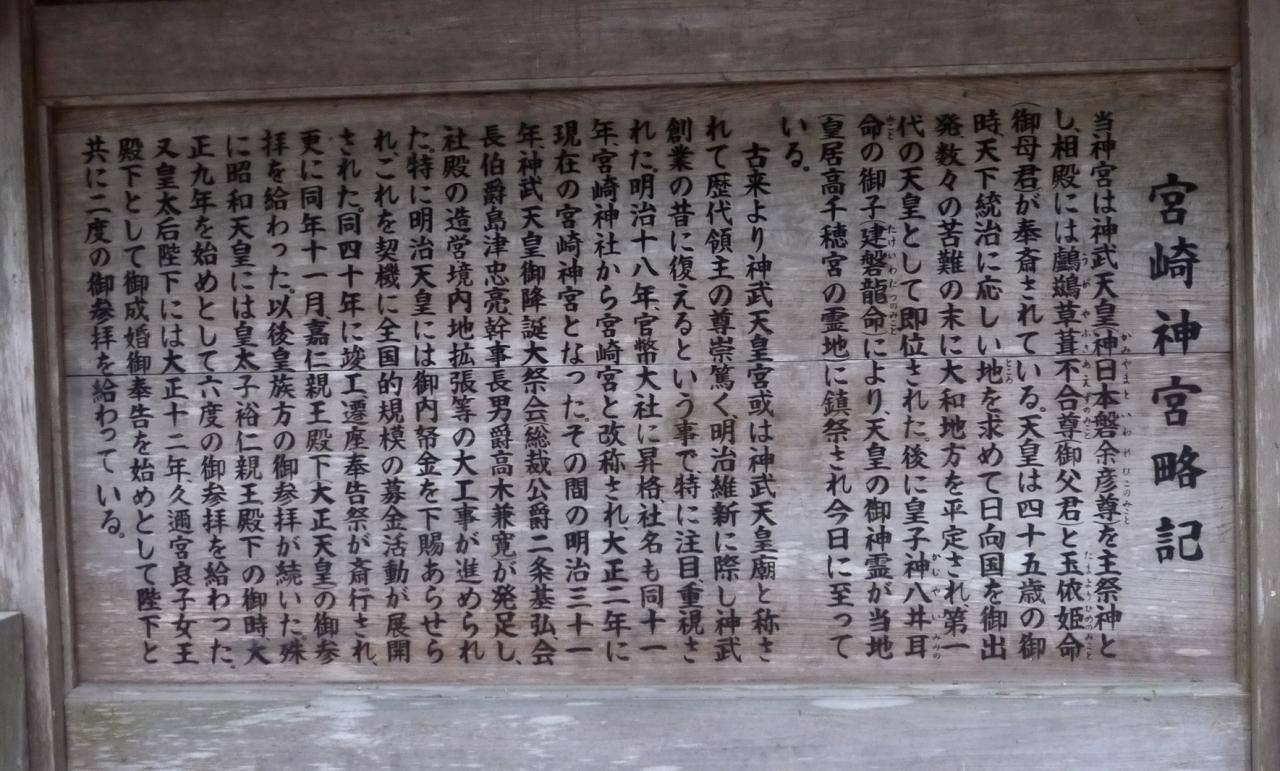 宮崎神宮略記
当神宮は神武天皇神日本磐余彦尊を主祭神と
し、相殿には鸕鷀草葺不合尊(御父君)と玉依姫命
(御母君)が奉斎されている。天皇は四十五歳の御
時、天下統治に応しい地を求めて日向国を御出
発、数々の苦難の末に大和地方を平定され、第一
代の天皇として即位された。後に皇子神八井耳
命の御子建磐龍命により、天皇の御神霊が当地
(皇居高千穂宮の霊地)に鎮祭され今日に至って
いる。
古来より神武天皇宮或は神武天皇廟と称さ
れて歴代領主の尊崇篤く、明治維新に際し神武
創業の昔に復えるという事で、特に注目、重視さ
れた。明治十八年、官幣大社に昇格、社名も同十一
年、宮崎神社から宮崎宮と改称され、大正二年に
現在の宮崎神宮となった。その間の明治三十一
年、神武天皇御降誕大祭会(総裁公爵二条基弘、会
長伯爵島津忠亮、幹事長男爵高木兼寛)が発足し、
社殿の造営、境内地拡張等の大工事が進められ
た。特に明治天皇には御内帑金を下賜あらせら
れ、これを契機に全国的規模の募金活動が展開
された。同四十年に竣工、遷座奉告祭が斎行され、
更に同年十一月、嘉仁親王殿下(大正天皇)の御参
拝を給わった。以後皇族方の御参拝が続いた。殊
に昭和天皇には皇太子裕仁親王殿下の御時、大
正九年を始めとして六度の御参拝を給わった、
又皇太后陛下には大正十二年、久邇宮良子女王
殿下として御成婚御奉告を始めとして陛下と
共に二度の御参拝を給わっている。